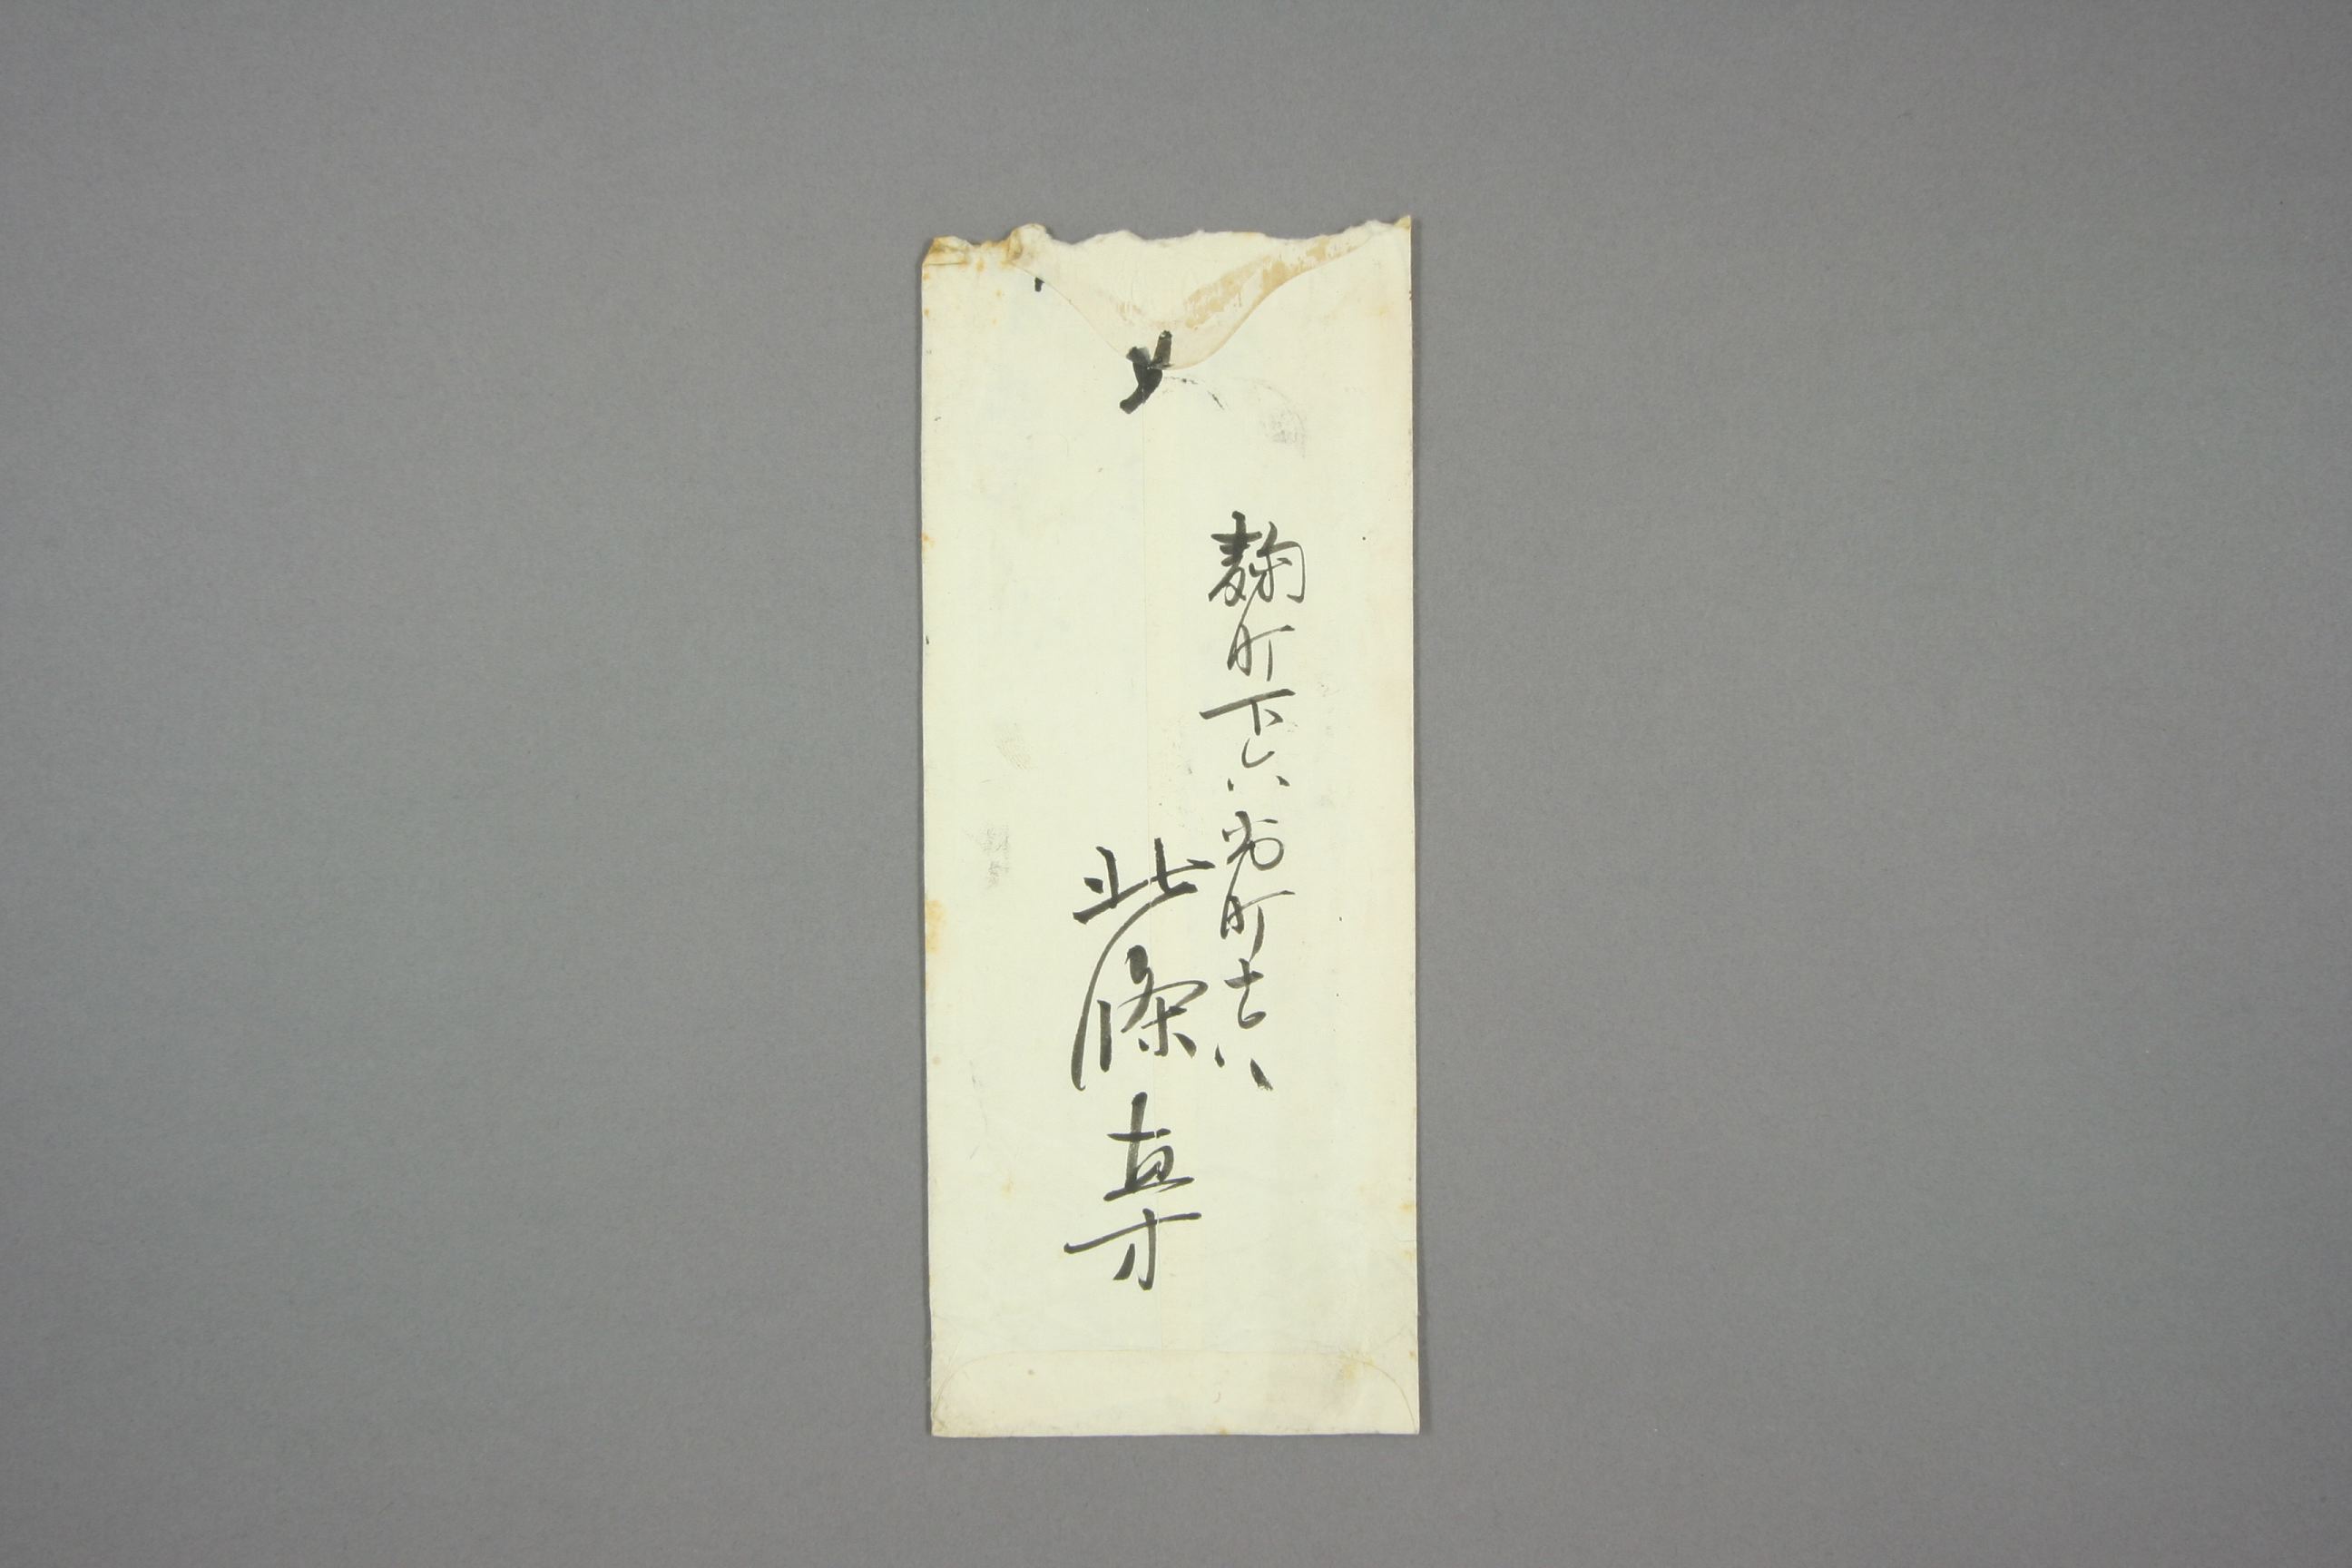 〆
麹町下六番町十六
北條直方